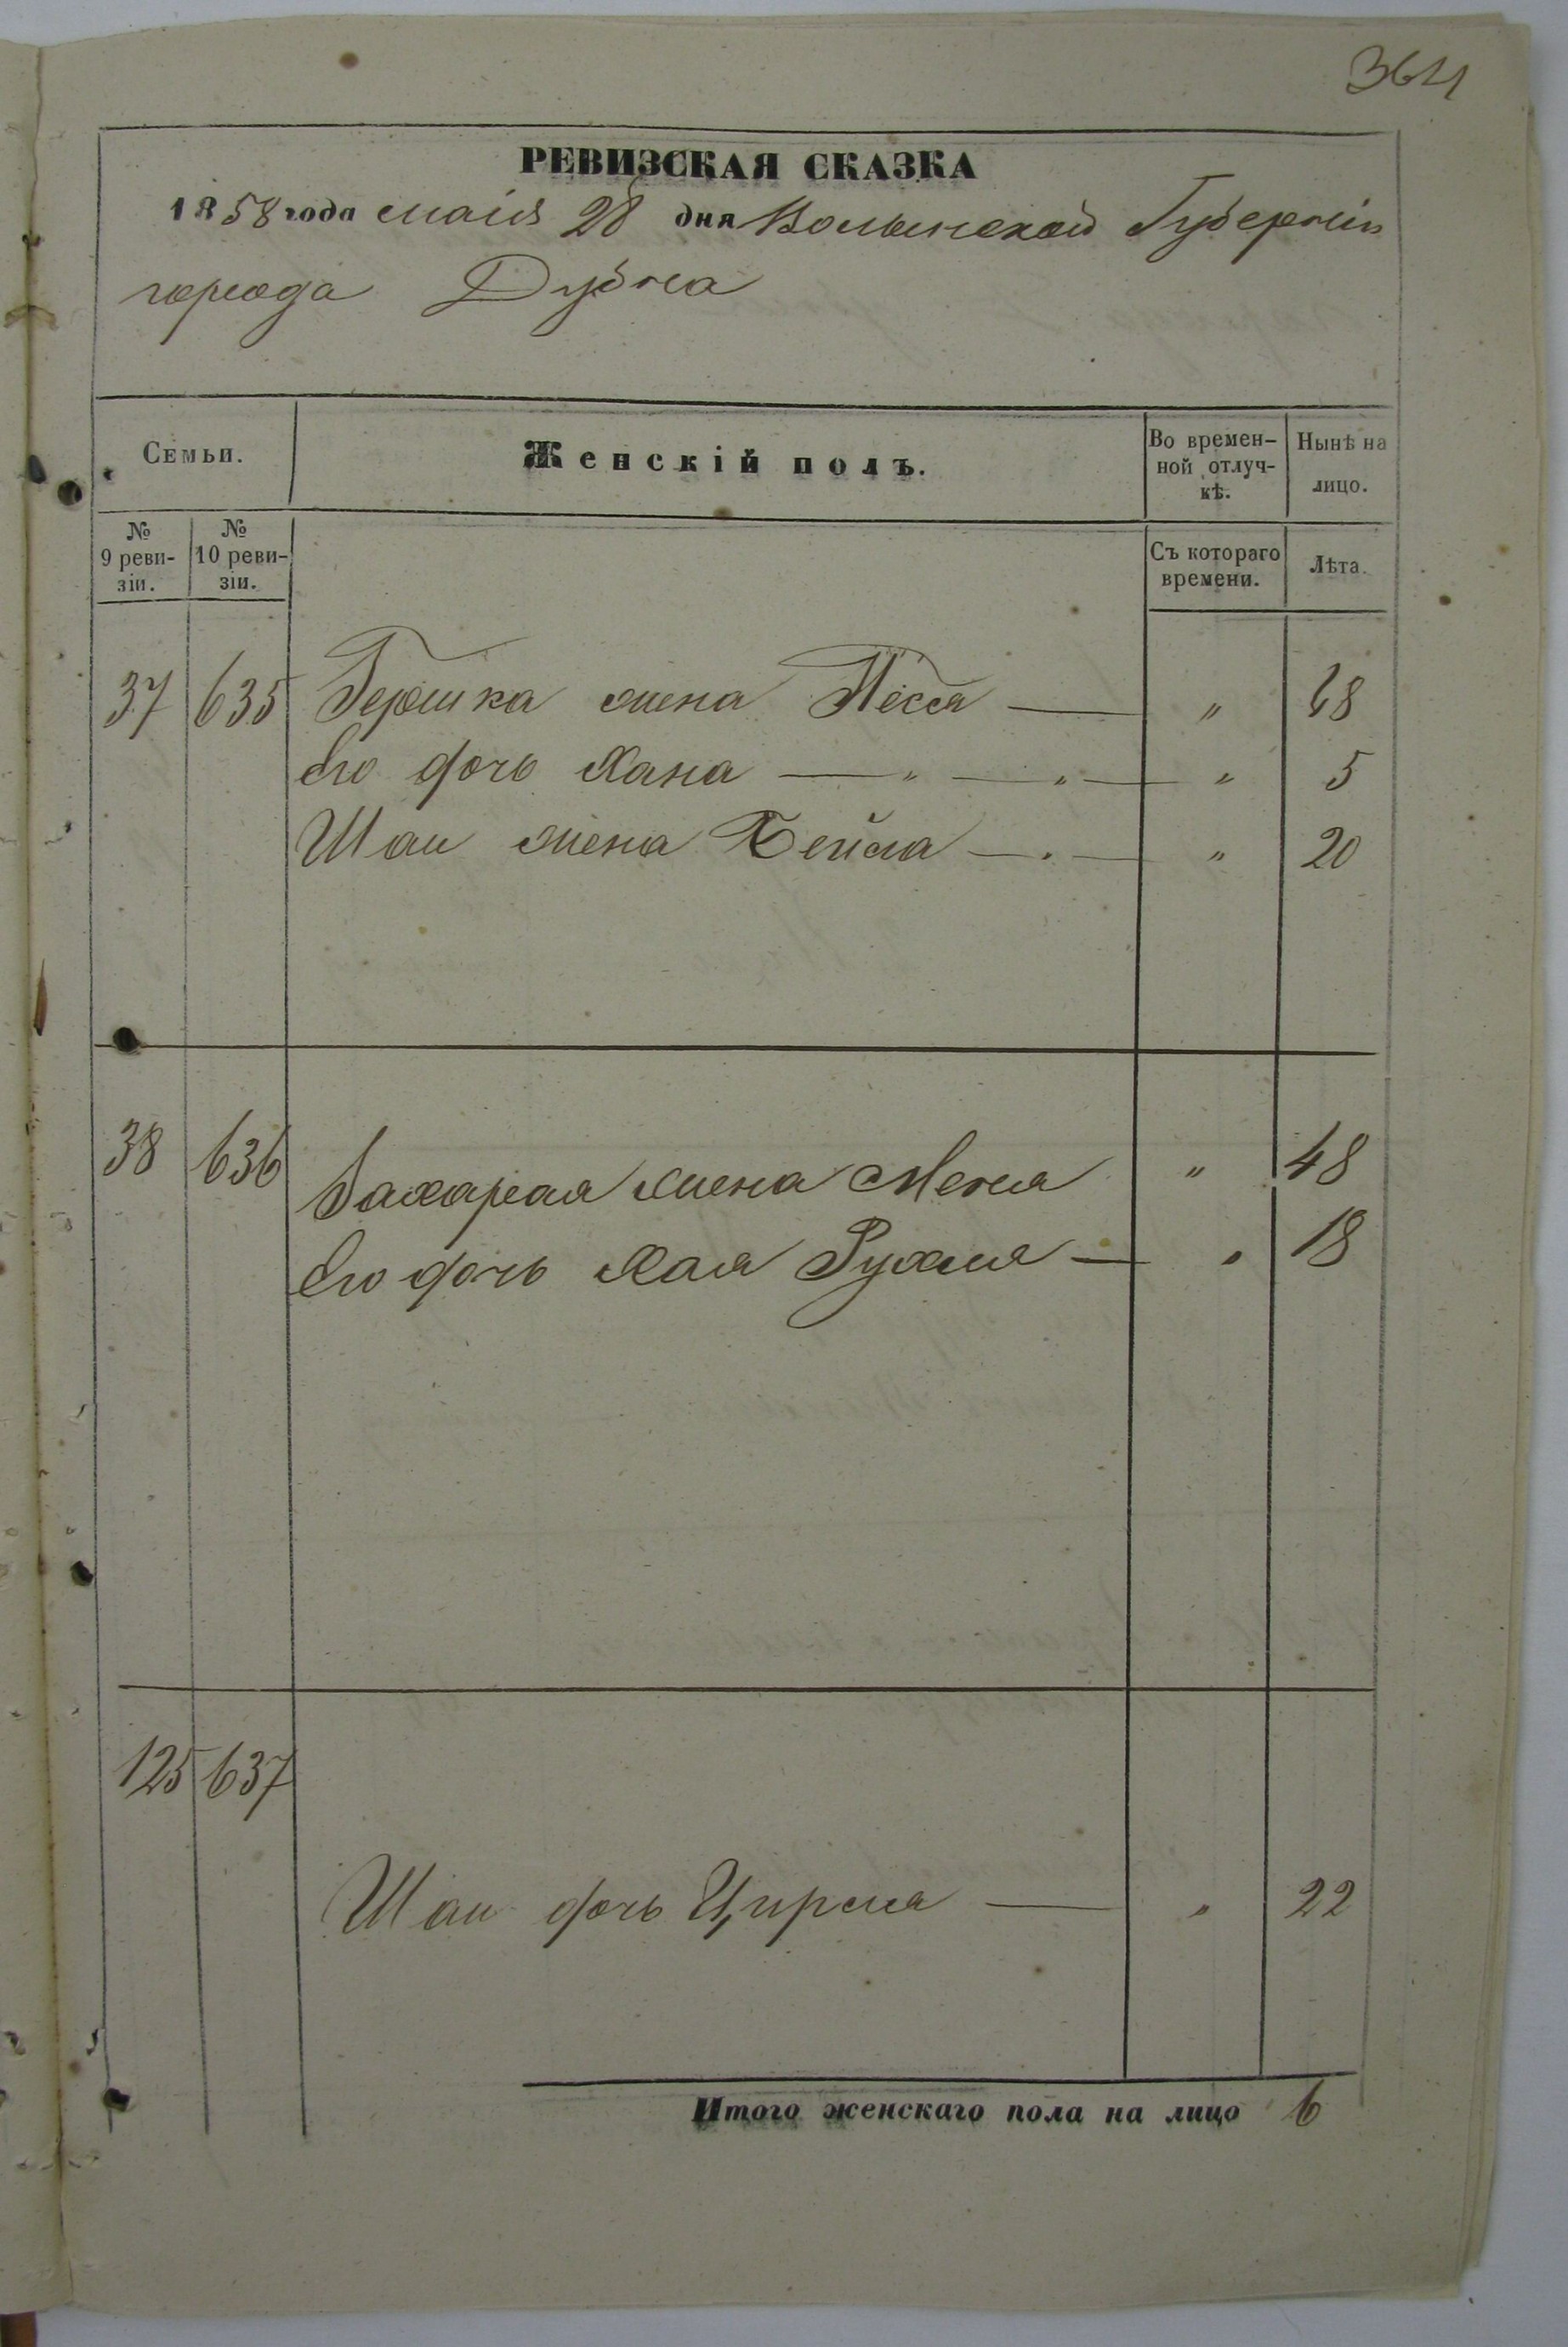 364
РЕВИЗСКАЯ СКАЗКА
1858 года маія 28 дня Волынской Губерніи
города Дубна
Семьи.
Женскій полъ.
Во времен-
ной отлуч-
кѣ.
Нынѣ на
лицо.
№
9 реви-
зіи.
№
10 реви-
зіи.
Съ котораго
времени.
Лѣта.
37 635 Гершка жена Песся — " 48
Его дочь Хана — " — " — " 5
Шаи жена Бейла — " — " 20
38 636 Захарая жена Меня " 48
Его дочь Хая Рухля — " 18
125 637
Шаи дочь Цирля — " 22
Итого женскаго пола на лицо 6